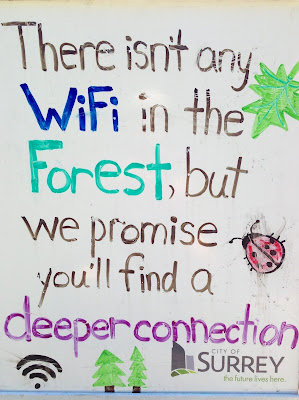 There isn't any
WiFi in the
Forest, but
we promise
you'll find a
deeper connection
CITY OF
SURREY
the future lives here.